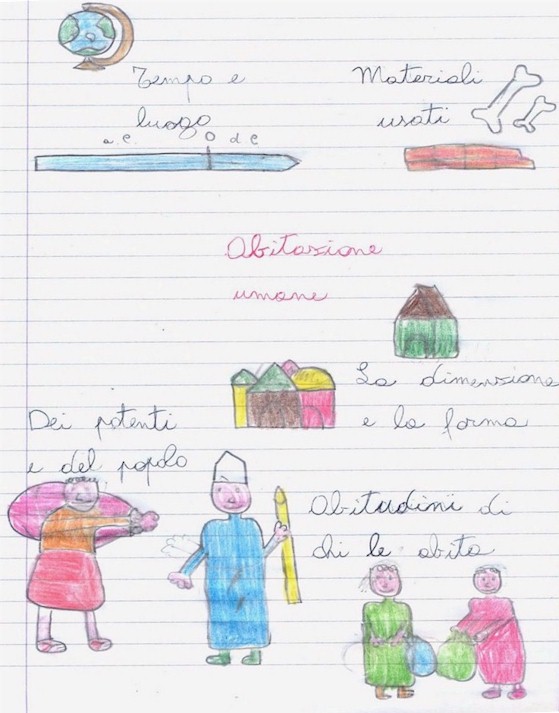 Tempo e
luogo
a.C. 0 d C
Materiali
usati
Abitazione
umane
La dimensione
e la forma
Dei potenti
e del popolo
Abitudini di
chi le abita